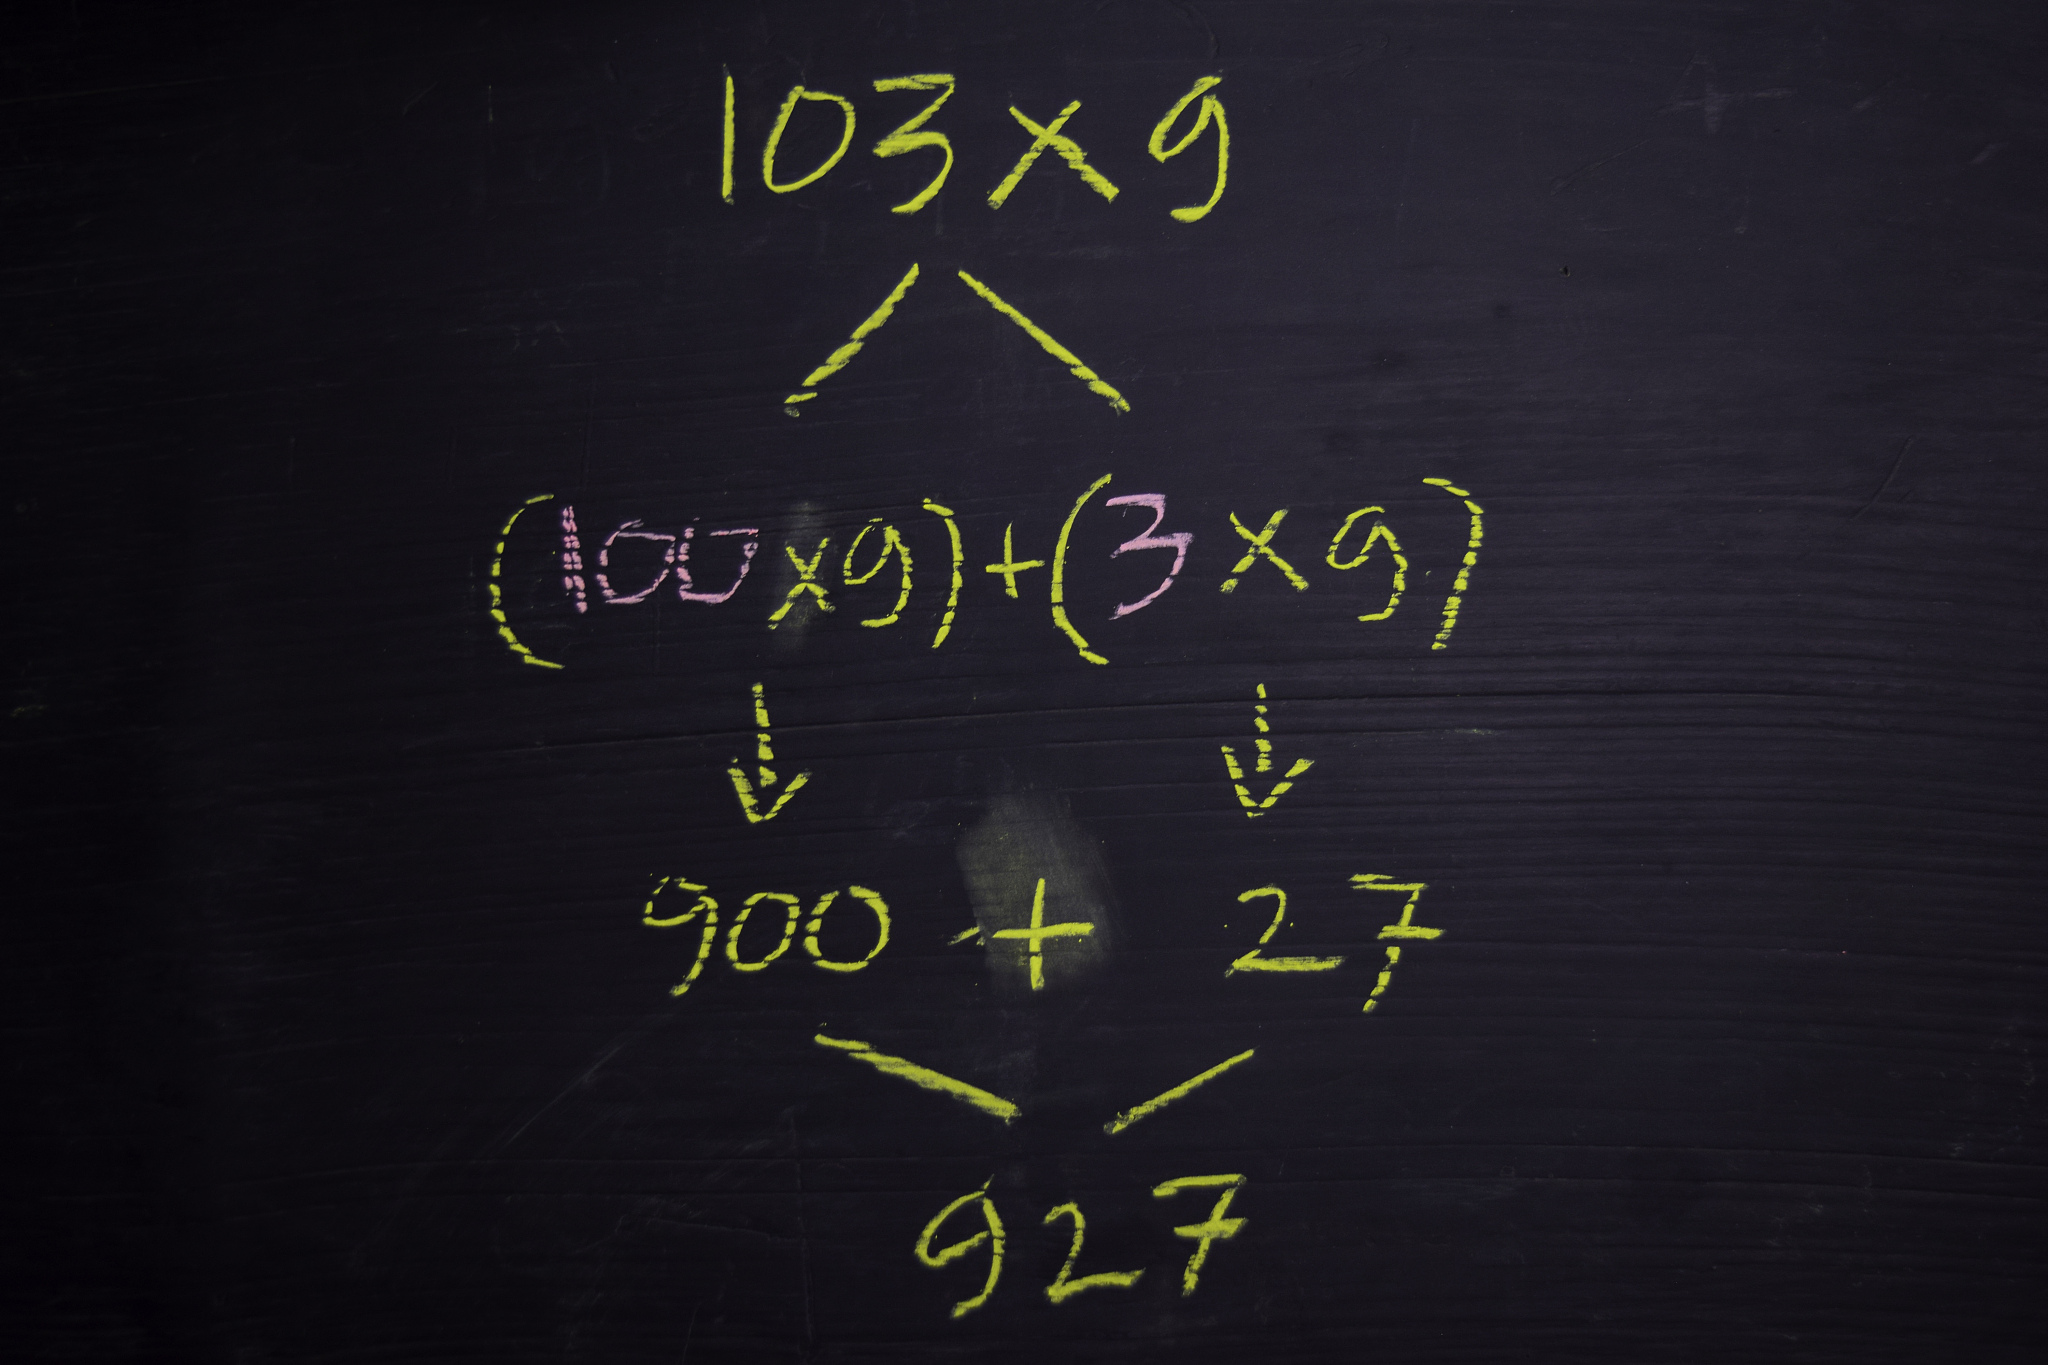 103 x 9
(100 x 9) + (3 x 9)
900 + 27
927